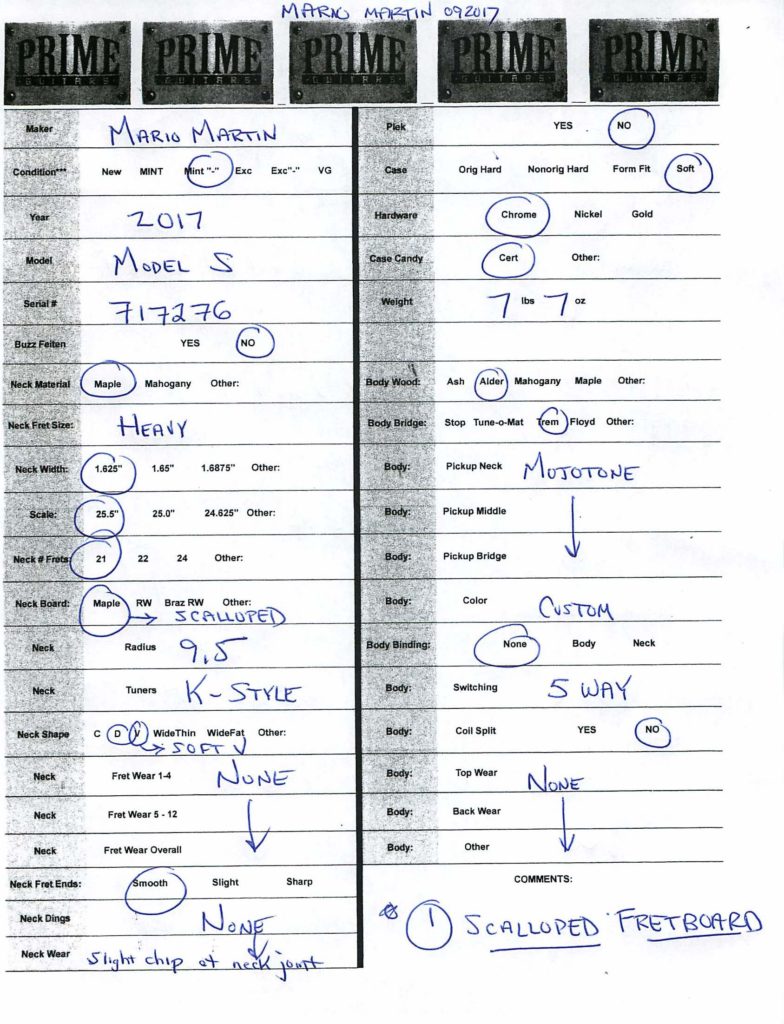 MARIO MARTIN 092017
PRIME GUITARS PRIME GUITARS PRIME GUITARS PRIME GUITARS PRIME GUITARS
Maker MARIO MARTIN
Condition*** New MINT Mint "-" Exc Exc"-" VG
Year 2017
Model MODEL S
Serial # 717276
Buzz Feiten YES NO
Neck Material Maple Mahogany Other:
Neck Fret Size: HEAVY
Neck Width: 1.625" 1.65" 1.6875" Other:
Scale: 25.5" 25.0" 24.625" Other:
Neck # Frets: 21 22 24 Other:
Neck Board: Maple RW Braz RW Other:
SCALLOPED
Neck Radius 9.5
Neck Tuners K-STYLE
Neck Shape C D V WideThin WideFat Other:
SOFT V
Neck Fret Wear 1-4 NONE
Neck Fret Wear 5 - 12
Neck Fret Wear Overall
Neck Fret Ends: Smooth Slight Sharp
Neck Dings NONE
Neck Wear Slight chip at neck joint
Plek YES NO
Case Orig Hard Nonorig Hard Form Fit Soft
Hardware Chrome Nickel Gold
Case Candy Cert Other:
Weight 7 lbs 7 oz
Body Wood: Ash Alder Mahogany Maple Other:
Body Bridge: Stop Tune-o-Mat Trem Floyd Other:
Body: Pickup Neck MOJOTONE
Body: Pickup Middle
Body: Pickup Bridge
Body: Color CUSTOM
Body Binding: None Body Neck
Body: Switching 5 WAY
Body: Coil Split YES NO
Body: Top Wear NONE
Body: Back Wear
Body: Other
COMMENTS:
1 SCALLOPED FRETBOARD